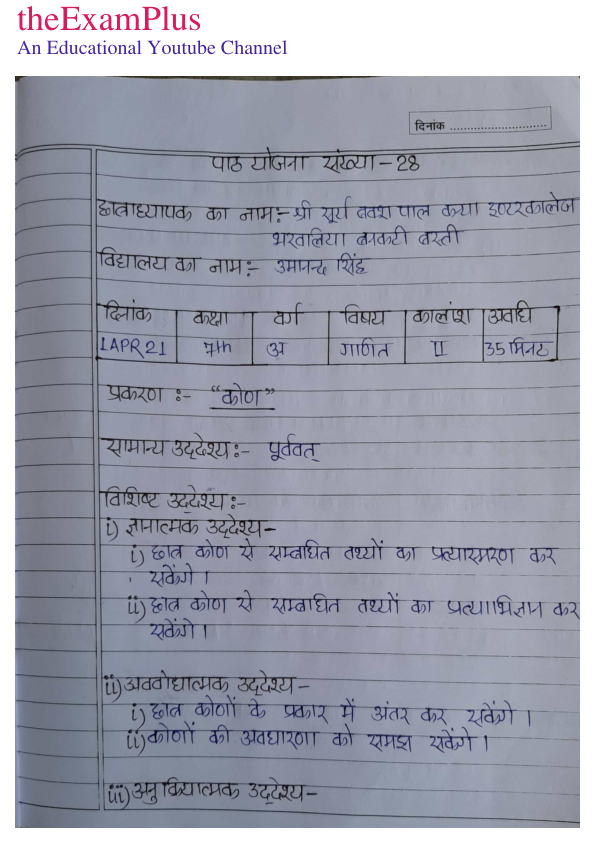 theExamPlus
An Educational Youtube Channel
दिनांक ............................
पाठ योजना संख्या - 28
छात्राध्यापक का नाम :- श्री सूर्य बक्श पाल कन्या इण्टरकालेज
बनकटी बस्ती
विद्यालय का नाम :- उमानन्द सिंह
दिनांक कक्षा वर्ग विषय कालांश अवधि
1APR21 7th अ गणित II 35 मिनट
प्रकरण :- "कोण"
सामान्य उद्देश्य :- पूर्ववत्
विशिष्ट उद्देश्य :-
i) ज्ञानात्मक उद्देश्य -
i) छात्र कोण से सम्बाधित तथ्यों का प्रत्यास्मरण कर
सकेंगे ।
ii) छात्र कोण से सम्बाधित तथ्यों का प्रत्याभिज्ञान कर
सकेंगे ।
ii) अवबोधात्मक उद्देश्य -
i) छात्र कोणों के प्रकार में अंतर कर सकेंगे ।
ii) कोणों की अवधारणा को समझ सकेंगे ।
iii) अनुक्रियात्मक उद्देश्य -